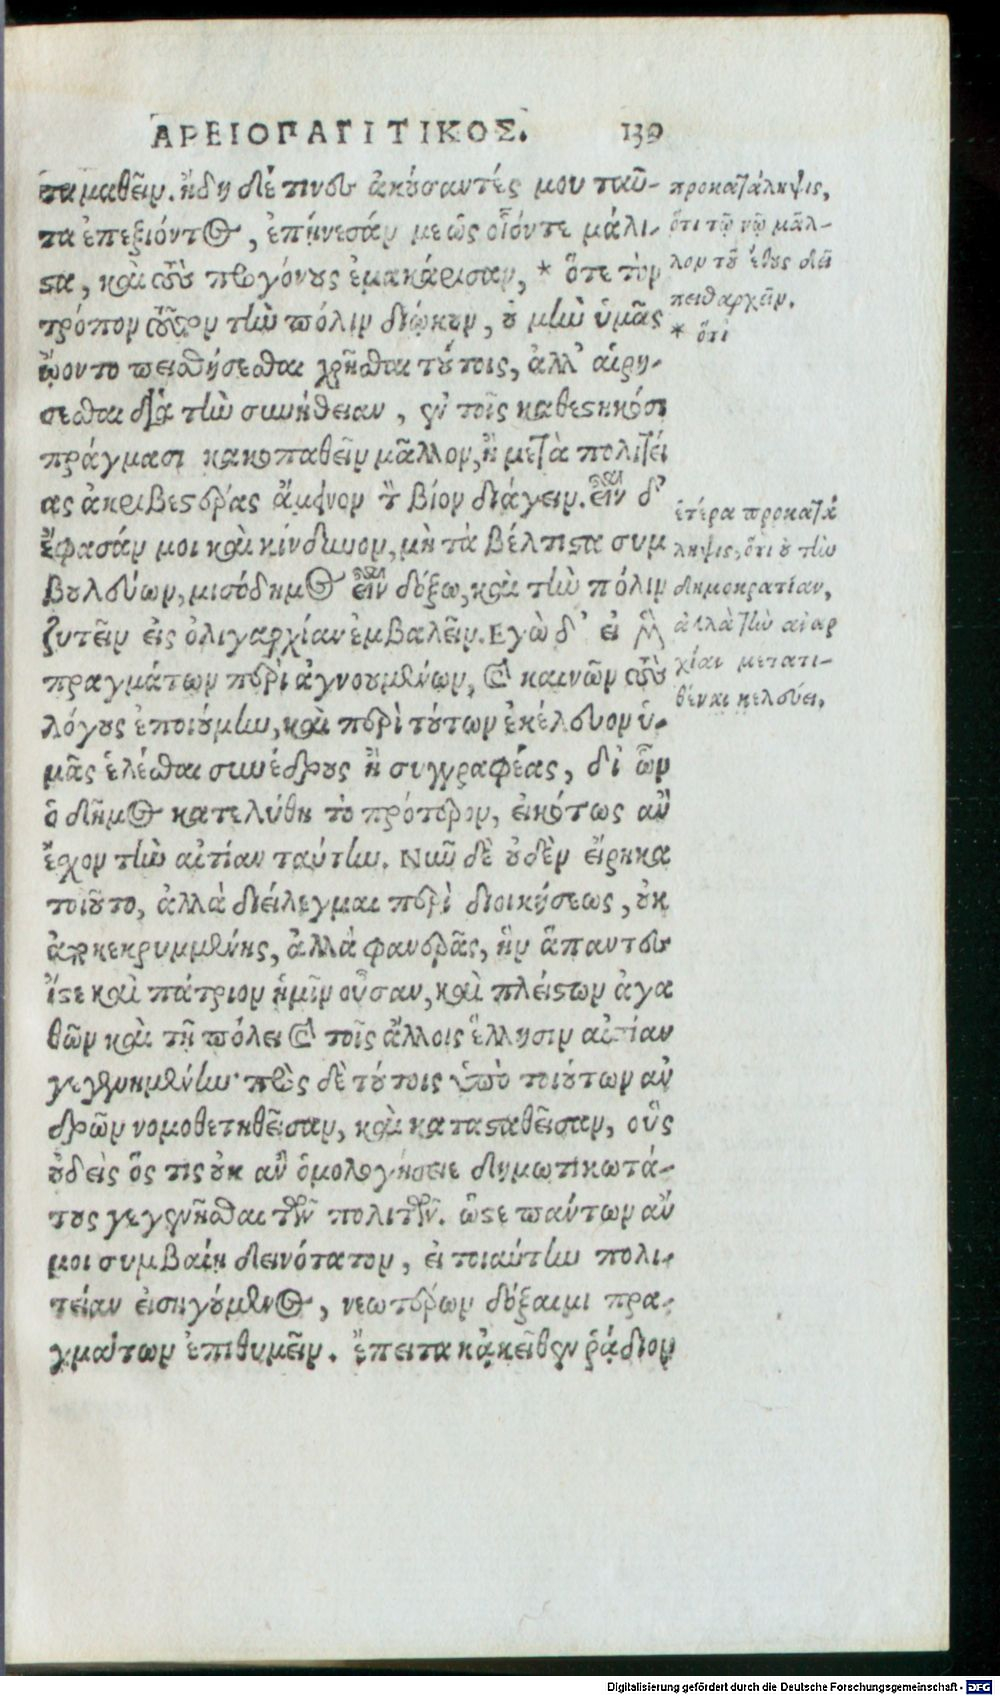 ΑΡΕΙΟΠΑΓΙΤΙΚΟΣ. 139
ϛα μαθεῖν. ἤδη δέ τινες ἀκούσαντές μου ταῦ-
τα ἐπεξιόντος, ἐπῄνεσάν με ὡς οἷόντε μάλι-
ϛα, καὶ τοὺς προγόνους ἐμακάρισαν, * ὅτε τὸν
τρόπον τοῦτον τὴν πόλιν διῴκουν, οὐ μὴν ὑμᾶς
ᾤοντο πεισθήσεσθαι χρῆσθαι τούτοις, ἀλλ' αἱρή-
σεσθαι διὰ τὴν συνήθειαν, ἐν τοῖς καθεϛηκόσι
πράγμασι κακοπαθεῖν μᾶλλον, ἢ μετὰ πολιτεί
ας ἀκριβεϛέρας ἄμεινον τὸν βίον διάγειν. εἶναι δ'
ἔφασάν μοι καὶ κίνδυνον, μὴ τὰ βέλτιϛα συμ
βουλεύων, μισόδημος εἶναι δόξω, καὶ τὴν πόλιν
ζητεῖν εἰς ὀλιγαρχίαν ἐμβαλεῖν. Εγὼ δ' εἰ μὲν
πραγμάτων περὶ ἀγνοουμένων, καὶ καινῶν τοὺς
λόγους ἐποιούμην, καὶ περὶ τούτων ἐκέλευον ὑ-
μᾶς ἑλέσθαι συνέδρους ἢ συγγραφέας, δι' ὧν
ὁ δῆμος κατελύθη τὸ πρότερον, εἰκότως ἂν
ἔχον τὴν αἰτίαν ταύτην. Νῦν δὲ οὐδὲν εἴρηκα
τοιοῦτο, ἀλλὰ διείλεγμαι περὶ διοικήσεως, οὐκ
ἀποκεκρυμμένης, ἀλλὰ φανερᾶς, ἣν ἅπαντες
ἴϛε καὶ πάτριον ἡμῖν οὖσαν, καὶ πλείϛων ἀγα
θῶν καὶ τῇ πόλει καὶ τοῖς ἄλλοις ἕλλησιν αἰτίαν
γεγενημένην· πρὸς δὲ τούτοις ὑπὸ τοιούτων ἀν
δρῶν νομοθετηθεῖσαν, καὶ καταϛαθεῖσαν, οὓς
οὐδεὶς ὅς τις οὐκ ἂν ὁμολογήσειε δημωτικωτά-
τους γεγενῆσθαι τῶν πολιτῶν. ὥϛε πάντων ἂν
μοι συμβαίη δεινότατον, εἰ τοιαύτην πολι-
τείαν εἰσηγούμενος, νεωτέρων δόξαιμι πρα-
γμάτων ἐπιθυμεῖν. ἔπειτα κἀκεῖθεν ῥᾴδιον
προκατάληψις,
ὅτι τῷ νῷ μᾶλ-
λον τοῦ ἔθους δεῖ
πειθαρχεῖν.
* ὅτι
ἑτέρα προκατά
ληψις, ὅτι οὐ τὴν
δημοκρατίαν,
ἀλλὰ τὴν ἀναρ
χίαν μετατι-
θέναι κελεύει.
Digitalisierung gefördert durch die Deutsche Forschungsgemeinschaft - DFG